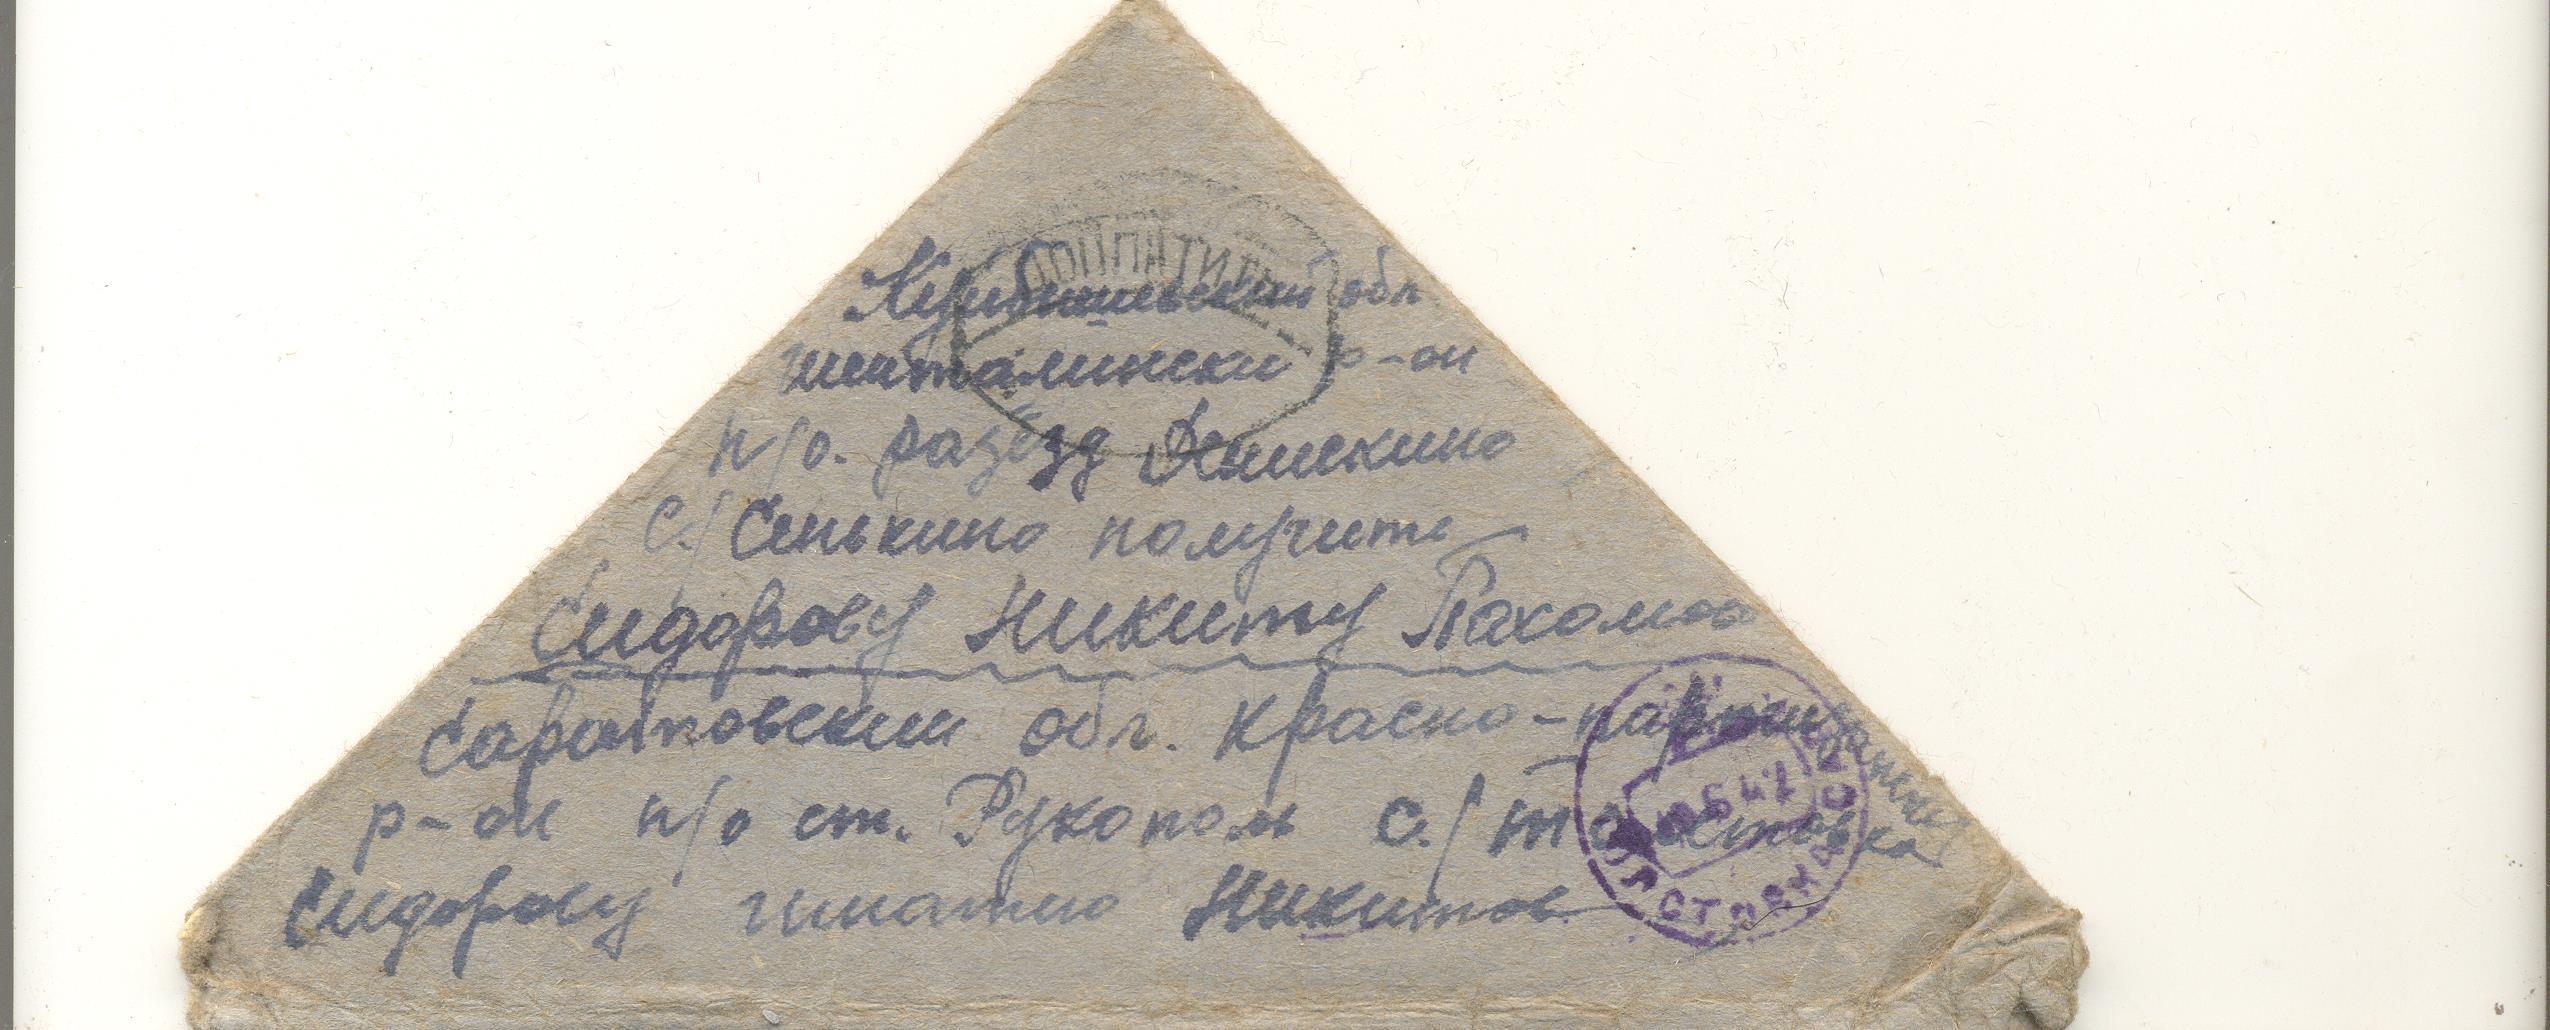 Куибишевский обл.
шенталински р-он
п/о. разъезд Денискино
С./ Сенькино получить
Сидорову Никиту Пахомов
Саратовский обл. красно-партизански
р-он п/о ст. Рукополь с./ толстовка
Сидорову Никитов